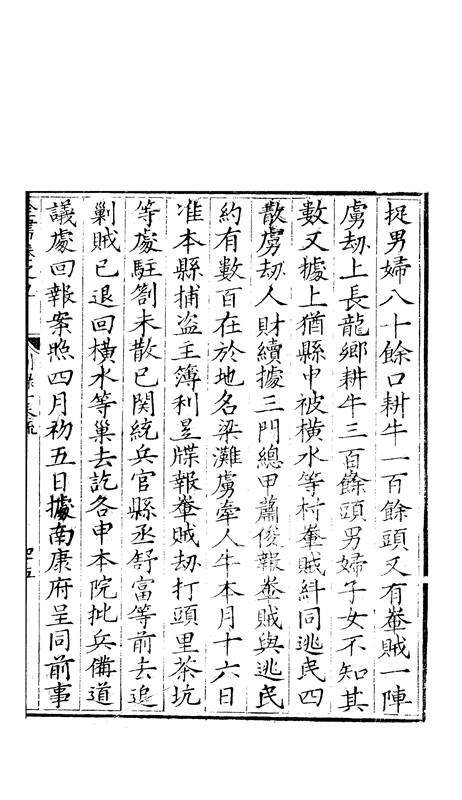 捉男婦八十餘口耕牛一百餘頭又有輋賊一陣
虜劫上長龍鄉耕牛三百餘頭男婦子女不知其
數又據上猶縣申被橫水等村輋賊糾同逃民四
散虜劫人財續據三門總甲蕭俊報輋賊與逃民
約有數百在於地名梁灘虜牽人牛本月十六日
准本縣捕盜主簿利昱牒報輋賊劫打頭里茶坑
等處駐劄未散已関統兵官縣丞舒富等前去追
剿賊已退回橫水等巢去訖各申本院批兵備道
議處回報案照四月初五日據南康府呈同前事